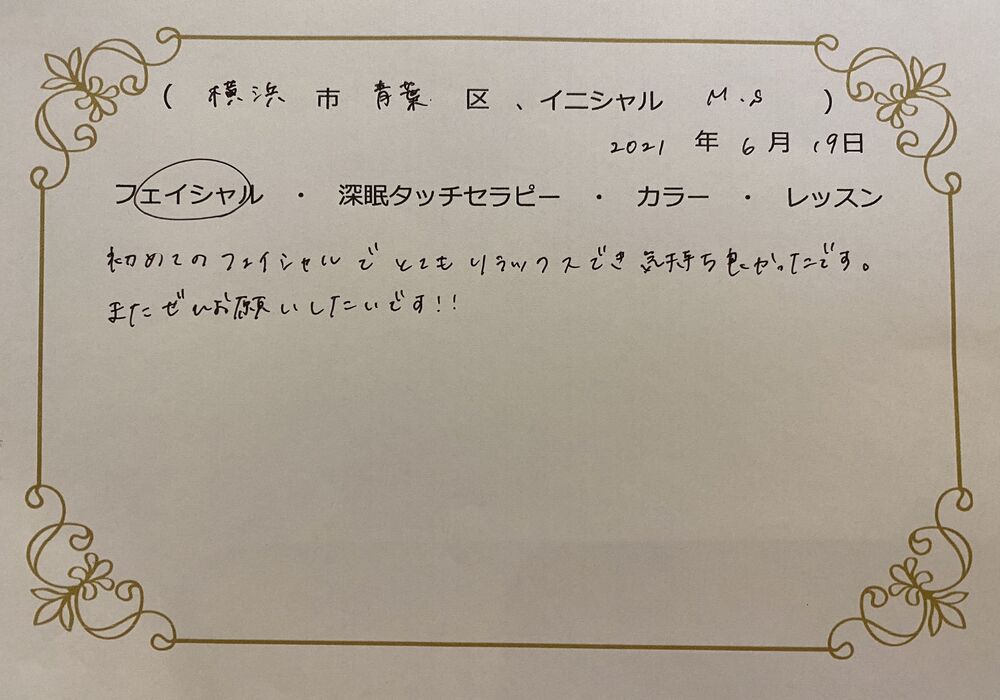 ( 横浜 市 青葉 区 、イニシャル M.S )
2021 年 6 月 19日
フェイシャル ・ 深眠タッチセラピー ・ カラー ・ レッスン
初めてのフェイシャルでとてもリラックスでき気持ち良かったです。
またぜひお願いしたいです!!